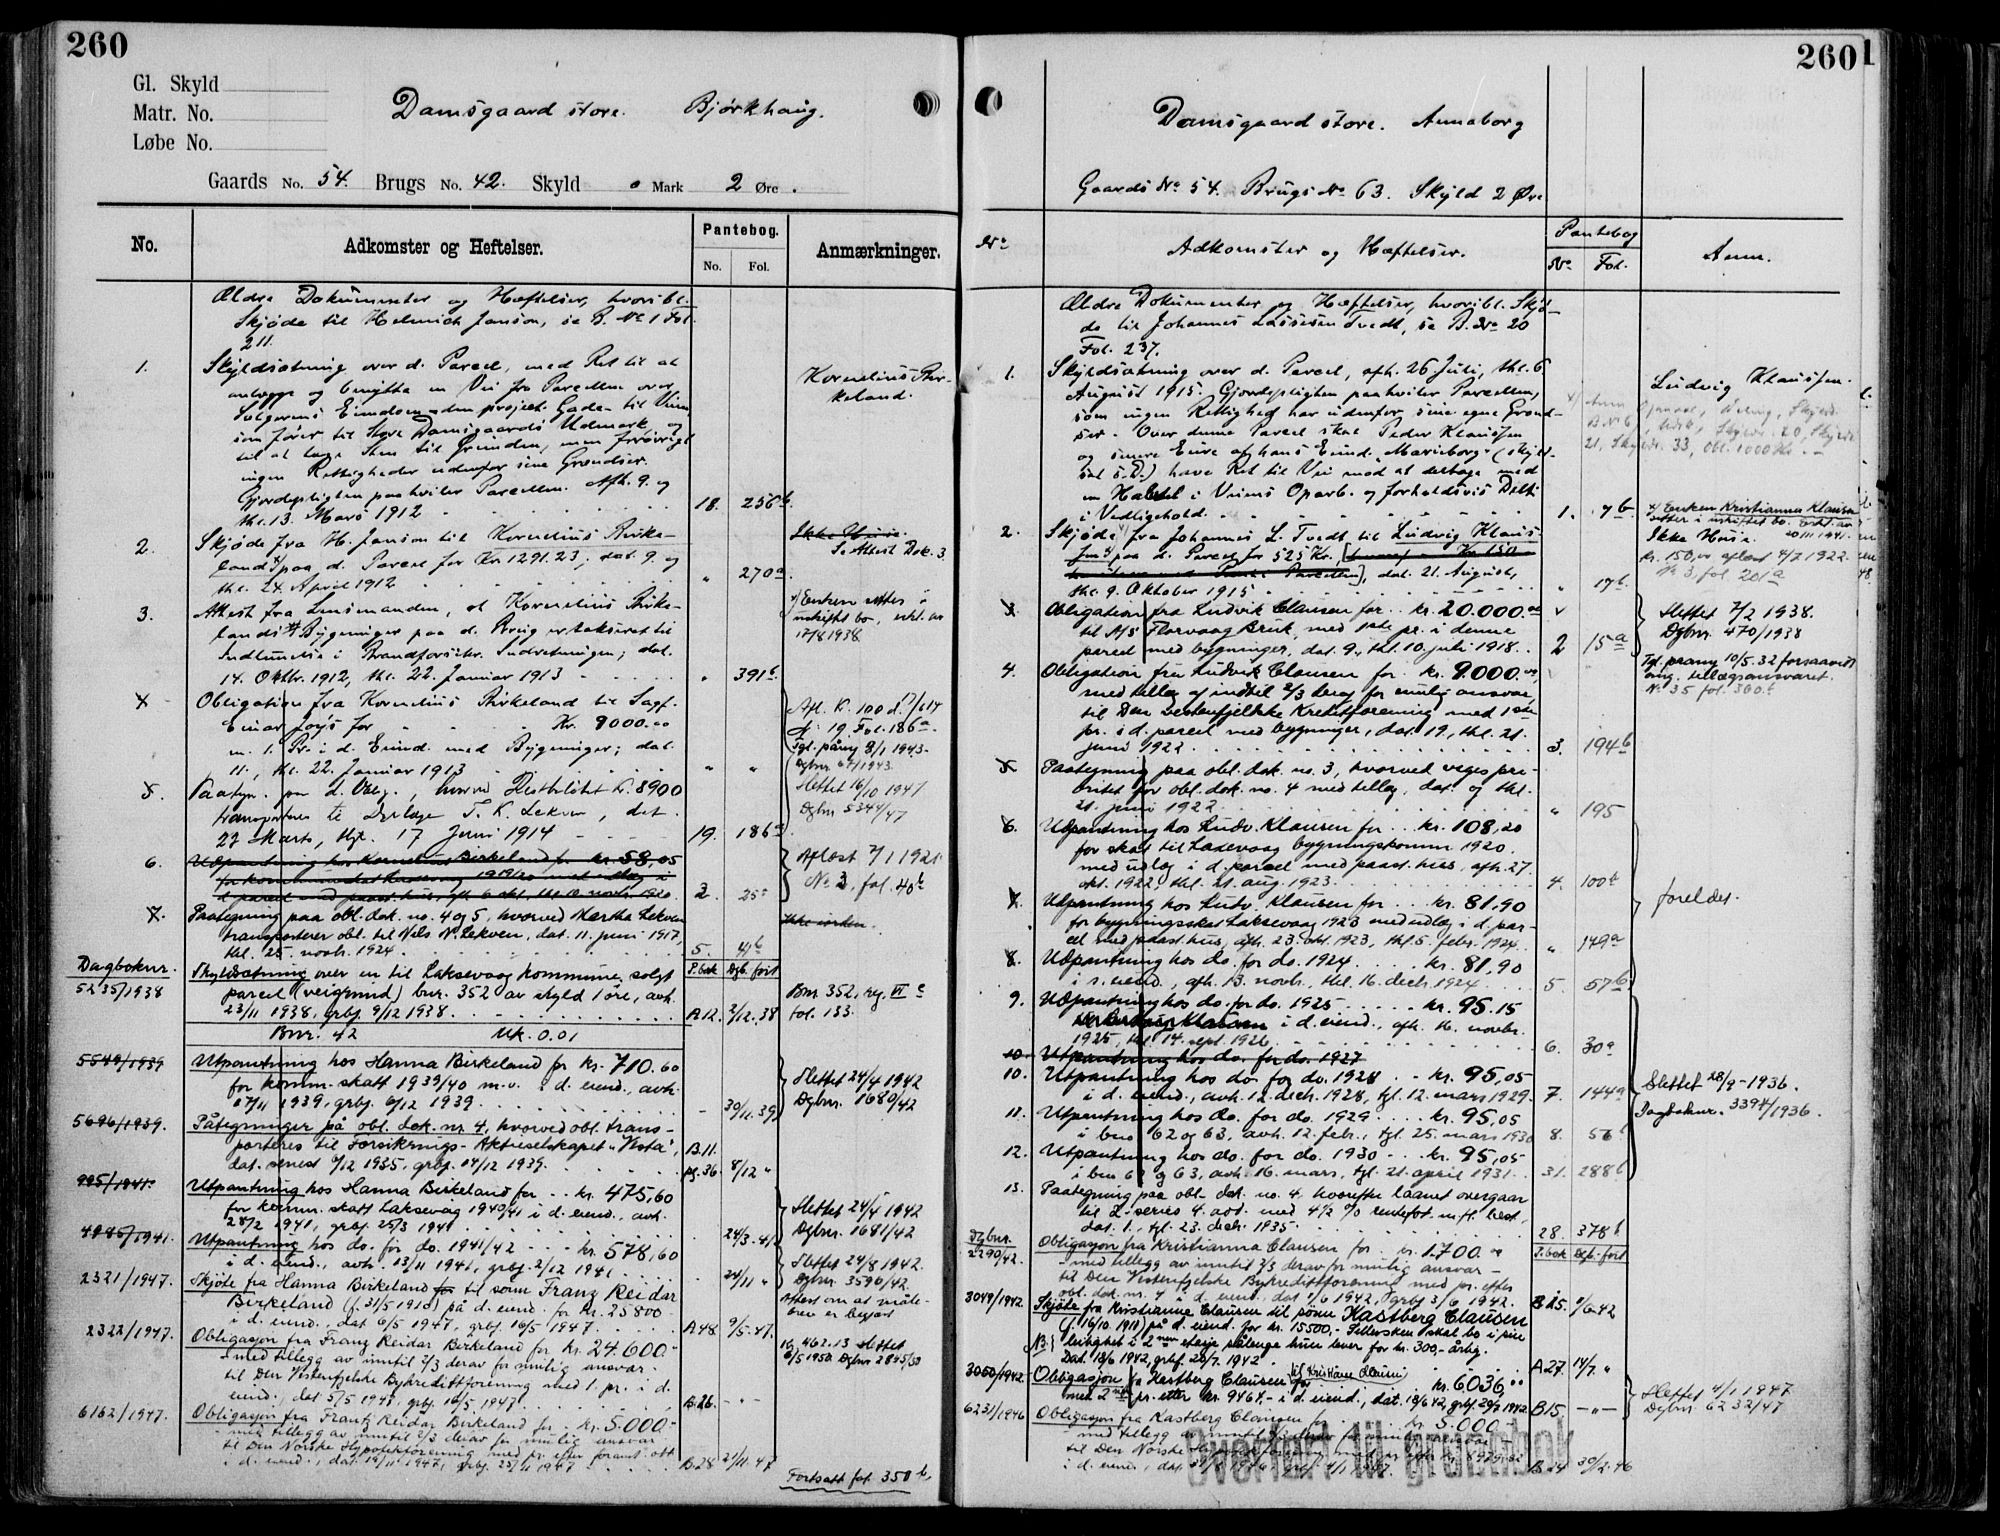 260
Gl. Skyld
Matr. No.
Løbe No.
Damsgaard store. Bjørkhaug.
Gaards No. 54. Brugs No. 42. Skyld 0 Mark 2 Øre.
No. Adkomster og Heftelser. Pantebog. No. Fol. Anmærkninger.
Ældre Dokumenter og Hæftelser, hvoribl.
Skjøde til Helmich Janson, se B. No 1 Fol.
211.
1. Skyldsætning over d. Parcel, med Ret til at
anlægge og benytte en Vei fra Parcellen over
Sælgerens Eiendom - den project. Gade - til Veien,
som fører til Store Damsgaards Udmark, og
til at tage Sten til Grunden, men forøvrigt
ingen Rettigheder udenfor sine Grændser.
Gjerdepligten paahviler Parcellen. Afh. 9. og
thl. 13. Mars 1912 18. 256b
Kornelius Bir-
keland.
2. Skjøde fra H. Janson til Kornelius Birke-
land paa d. Parcel for Kr. 1291.23; dat. 9. og
thl. 24. April 1912 " 270a
Ikke Huse.
Se Attest Dok. 3
3. Attest fra Lensmanden, at Kornelius Birke-
lands Bygninger paa d. Brug er taksert til
Indlemmelse i Brandforsikr. Indretningen; dat.
14. Oktbr. 1912, thl. 22. Januar 1913 " 391b
Enken sitter i
uskiftet bo, erkl. av
17/8 1938
4. Obligation fra Kornelius Birkeland til Sagf.
Einar Joys for Kr. 9000.00
m. 1. Pr. i d. Eiend. med Bygninger; dat.
11., thl. 22. Januar 1913 " "
Afl. K. 100 d. 17/6 14
19. Fol. 186a
Tgl. påny 8/1 1943.
Dgbnr 67/1943
Slettet 16/10 1947
Dgbnr 5344/47
5. Paategn. paa d. Oblg., hvorved Restbeløbet Kr. 8900
transporteres til T. K. Lekven, dat.
27 Marts, thgl. 17 Juni 1914 19. 186a
6. Udpantning hos Kornelius Birkeland for kr. 58,05
for kommuneskat Laksevaag 1919/20 med utlæg i
d. parcel med paast. hus, afh. 6. okt., thl. 10. novbr. 1920. 2. 25a
Aflæst 7/1 1921
No 2, fol. 40b
7. Paategning paa obl. dok. no. 4 og 5, hvorved Martha Lekven
transporterer obl. til Nils N. Lekven, dat. 11. juni 1917,
thl. 25. novbr. 1924. 5. 41b
Dagboknr. P.bok Dgb. ført
5235/1938 Skyldsetning over en til Laksevaag kommune solgt
parcel (veigrund) bnr. 352 av skyld 1 øre, avh.
23/11 1938, grbf. 9/12 1938. A12. 2/12.38
Bnr. 42 Mk. 0.01
Bnr. 352, reg. VI c
fol. 133.
5549/1939 Utpantning hos Hanna Birkeland for kr. 710.60
for komm. skatt 1939/40 m.v. i d. eiend., avh.
17/11 1939, grbf. 6/12 1939. 30/11.39
Slettet 24/4 1942
Dgbnr. 1680/42
5696/1939. Påtegninger på obl. dok. nr. 4, hvorved obl. trans-
porteres til Forsikrings-Aktieselskapet "Vesta",
dat. senest 6/12 1935, grbf. 14/12 1939. B11. pg. 36. 8/12 "
995/1941. Utpantning hos Hanna Birkeland for kr. 475,60
for komm. skatt Laksevåg 1940/41 i d. eiend., avh.
28/2 1941, grbf. 25/3 1941 24/3-41
Slettet 24/4 1942
Dgbnr. 1681/42
4985/1941. Utpantning hos do. for do. 1941/42 kr. 578,60
i d. eiend., avh. 13/11 1941, grbf. 2/12 1941 24/11 "
Slettet 24/8 1942.
Dgbnr. 3596/42.
2321/1947. Skjøte fra Hanna Birkeland til sønn Franz Reidar
Birkeland (f. 31/5 1918) på d. eiend. for kr. 25800
i d. eiend., dat 6/5 1947, grbf. 16/5 1947 A48. 9/5-47.
2322/1947. Obligasjon fra Franz Reidar Birkeland for kr. 24.600.-
- med tillegg av inntil 2/3 derav for mulig ansvar -
til Den Vestenfjelske Bykredittforening med 1. pr. i d.
eiend., dat 5/5 1947, grbf. 16/5 1947 B26. - " -
6162/1947. Obligasjon fra Frantz Reidar Birkeland for kr. 5.000.-
- med tillegg av inntil 2/3 derav for mulig ansvar -
til Den Norske Hypotekforening med pr. efter foranst. obl.
i d. eiend., dat 19/11 1947, grbf. 25/11 1947 B28 21/11.47
Fortsatt fol. 350 b.
260
1
Damsgaard store. Annaborg
Gaards No 54. Brugs No 63. Skyld 2 Øre
No Adkomster og Hæftelser. Pantebog No. Fol. Anm.
Ældre Dokumenter og Hæftelser, hvoribl. Skjø-
de til Johannes Lassesen Tvedt, se B. No 20
Fol. 237.
1. Skyldsætning over d. Parcel, afh. 26. Juli, thl. 6
August 1915. Gjerdepligten paahviler Parcellen,
som ingen Rettighed har udenfor sine egne Grænd-
ser. Over denne Parcel skal Peder Klaussen
og senere Eiere af hans Eiend. "Marieborg" (skyld-
sat s. D.) have Ret til Vei mod at deltage med
en Halvdel i Veiens Oparb. og forholdsvis Delt.
i Vedligehold. 1. 7b
Ludvig Klaussen.
2. Skjøde fra Johannes L. Tvedt til Ludvig Klaus-
sen paa d. Parcel for 525 Kr., dat. 21. August,
thl. 9. Oktober 1915 " 17b
Enken Kristianna Klausen
sitter i uskiftet bo. Erkl. av
20/11 1941.
Ikke Huse.
kr. 150,00 aflæst 4/7 1922.
No 3, fol. 201a
3. Obligation fra Ludvik Clausen for kr. 20.000.00
til A/S Florvaag Bruk, med 1ste pr. i denne
parcel med bygninger, dat. 9., thl. 10. juli 1918. 2 15a
Slettet 7/2 1938.
Dgbnr. 470/1938
4. Obligation fra Ludvik Clausen for kr. 9000.00,
med tillæg af indtil 2/3 deraf for mulig ansvar,
til Den vestenfjelske Kreditforening med 1ste
pr. i d. parcel med bygninger, dat. 19., thl. 21.
juni 1922 3. 194b
Tgl. paany 10/5.32 forsaavidt
ang. tillægsansvaret.
No 35 fol. 360.b
5. Paategning paa obl. dok. no. 3, hvorved viges pri-
oritet for obl. dok. no. 4 med tillæg, dat. og thl.
21. juni 1922 " 195
6. Udpantning hos Ludv. Klausen for kr. 108,20
for skat til Laksevaag bygningskomm. 1920.
med udlæg i d. parcel med paast. hus, afh. 27.
okt. 1922, thl. 21. aug. 1923. 4. 100b
7. Udpantning hos Ludv. Klausen for kr. 81,90
for bygningsskat Laksevaag 1923 med udlæg i d. par-
cel med paast. hus, afh. 23. okt. 1923, thl. 5. febr. 1924. " 149a
foreldet.
8. Udpantning hos do. for do. 1924 kr. 81,90
i s. eiend., afh. 13. novbr., thl. 16. decbr. 1924 5. 57b
9. Udpantning hos do. for do. 1925 kr. 95.15
i d. eiend., afh. 16. novbr.
1925, thl. 14. sept. 1926 6. 30a
10. Utpantning hos do. for do. 1927
10. Utpantning hos do. for do. 1928 kr. 95,05
i d. eiend., avh. 12. decbr. 1928, tgl. 12. mars 1929. 7. 144a
Slettet 28/9-1936.
Dagboknr. 3394/1936.
11. Utpantning hos do. for do. 1929 kr. 95,05
i bno 62 og 63, avh. 12. febr., tgl. 25. mars 1930 8. 56b
12. Utpantning hos do. for do. 1930 kr. 95,05
i bno 62 og 63, avh. 16. mars, tgl. 21. april 1931 31. 288b
13. Paategning paa obl. dok. no. 4, hvorefter laanet overgaar
til L-series 4. avd. med 4½ % rentefot m.fl. best.,
dat. 1., tgl. 23. decbr. 1935 28. 378b
Dgbnr. P.bok Dgb. ført
2290/42. Obligasjon fra Kristianna Clausen for kr. 1.700.00
- med tillegg av inntil 2/3 derav for mulig ansvar -
til Den Vestenfjelske Bykredittforening med pr. efter
obl. dok. nr. 4 i d. eiend., dat 1/6 1942, grbf 3/6 1942. B15. 1/6-42
3049/1942. Skjøte fra Kristianne Clausen til sønn Kastberg Clausen
(f. 16/10 1911) på d. eiend. for kr. 15500,- Selgersken skal bo i fri
NB! leilighet i 2nen etasje sålenge hun lever for kr. 300,- årlig.
Dat. 18/6 1942, grbf. 20/7 1942. A27. 14/7 "
3050/1942. Obligasjon fra Kastberg Clausen til Kristiane Clausen for kr. 6036.00
med 2nen pr. etter kr. 9464.- i d. eiend., dat. 18/6 42, grbf. 20/7 1942. B15. - " -
Slettet 4/1 1947
Dgbnr 6232/47
6231/1946 Obligasjon fra Kastberg Clausen for kr. 5.000.-
- med tillegg av inntil 2/3 derav for mulig ansvar -
til Den Norske Hypotekforening med pr. etter kr.
i d. eiend., dat B24 30/12-46
Overført til grunnbok